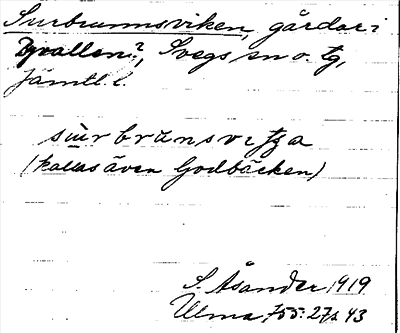 Surbrunnsviken, gårdar i
Byvallen?, Svegs sn o. tg,
Jämtl. l.
su̇rbrȧnsvitja
(kallas även Godbäcken)
S. Åsander 1919
Ulma 755:27 s. 43